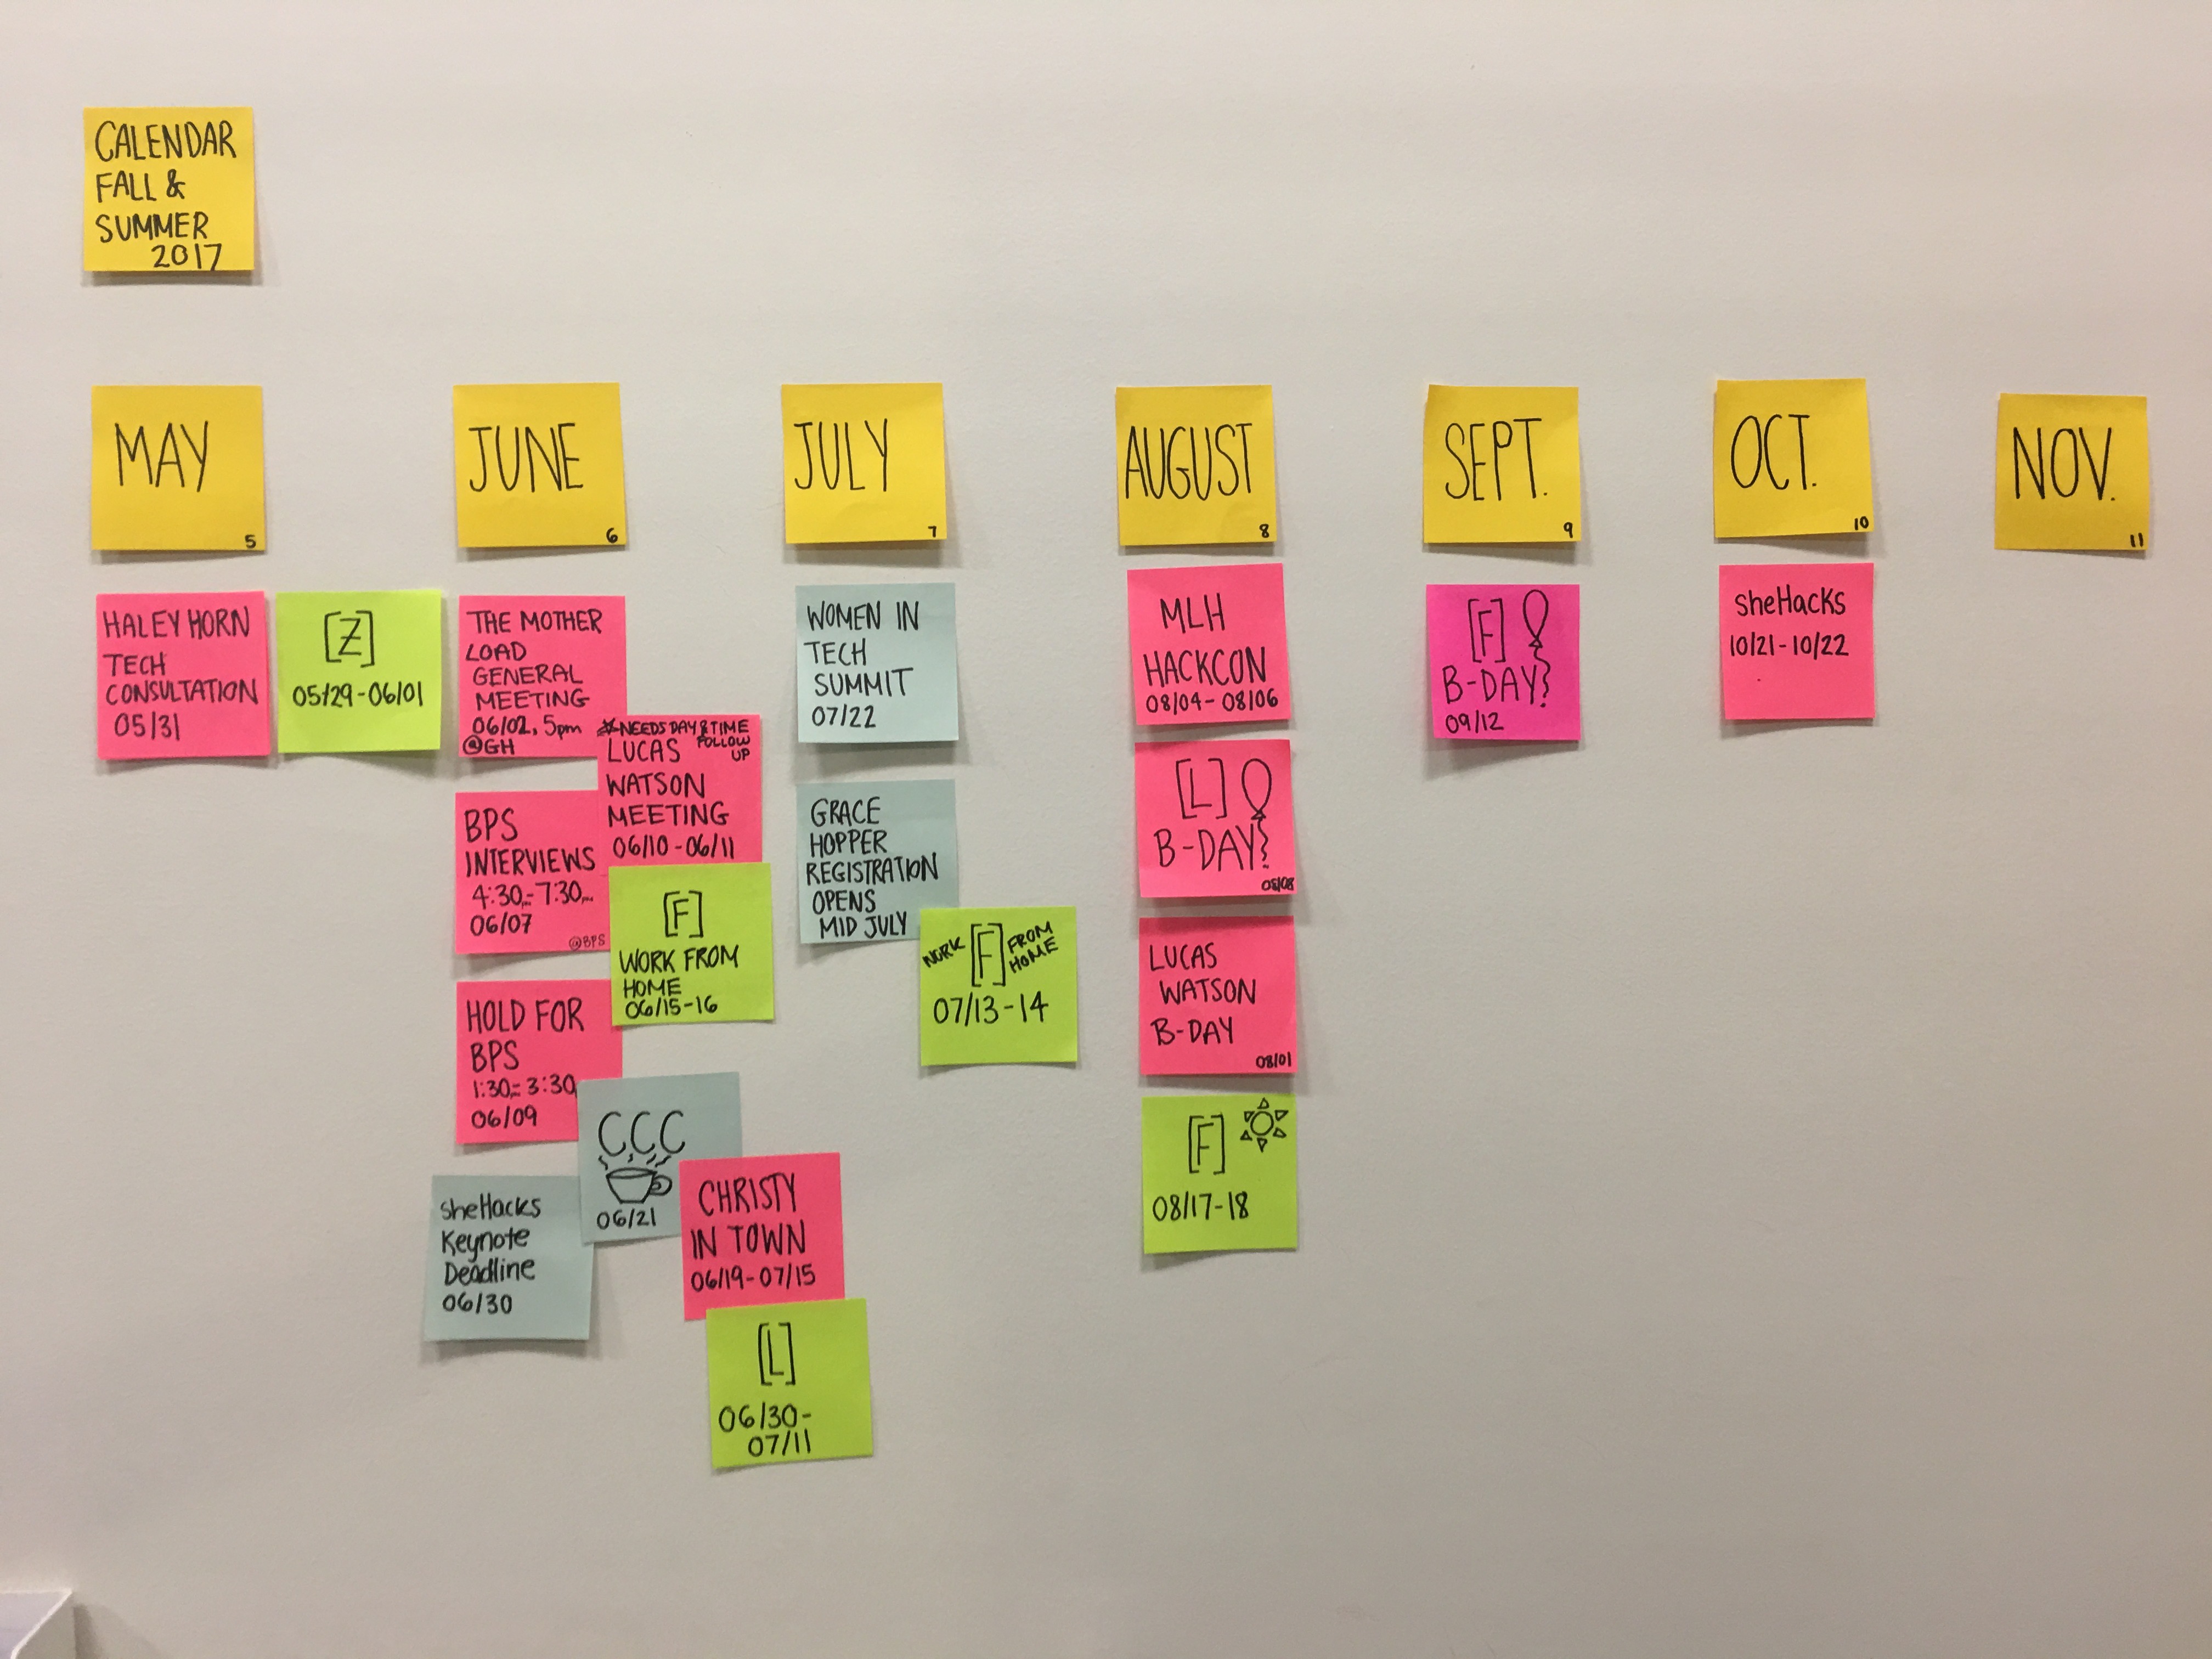 CALENDAR
FALL &
SUMMER
2017
MAY
5
HALEY HORN
TECH
CONSULTATION
05/31
[Z]
05/29-06/01
JUNE
6
THE MOTHER
LOAD
GENERAL
MEETING
06/02, 5pm
@GH
*NEEDS DAY & TIME
FOLLOW
UP
LUCAS
WATSON
MEETING
06/10-06/11
BPS
INTERVIEWS
4:30-7:30
06/07
@BPS
[F]
WORK FROM
HOME
06/15-16
HOLD FOR
BPS
1:30-3:30
06/09
CCC
06/21
sheHacks
Keynote
Deadline
06/30
CHRISTY
IN TOWN
06/19-07/15
[L]
06/30-
07/11
JULY
7
WOMEN IN
TECH
SUMMIT
07/22
GRACE
HOPPER
REGISTRATION
OPENS
MID JULY
WORK [F] FROM
HOME
07/13-14
AUGUST
8
MLH
HACKCON
08/04-08/06
[L]
B-DAY!
08/08
LUCAS
WATSON
B-DAY
08/01
[F]
08/17-18
SEPT.
9
[F]
B-DAY!
09/12
OCT.
10
sheHacks
10/21-10/22
NOV.
11